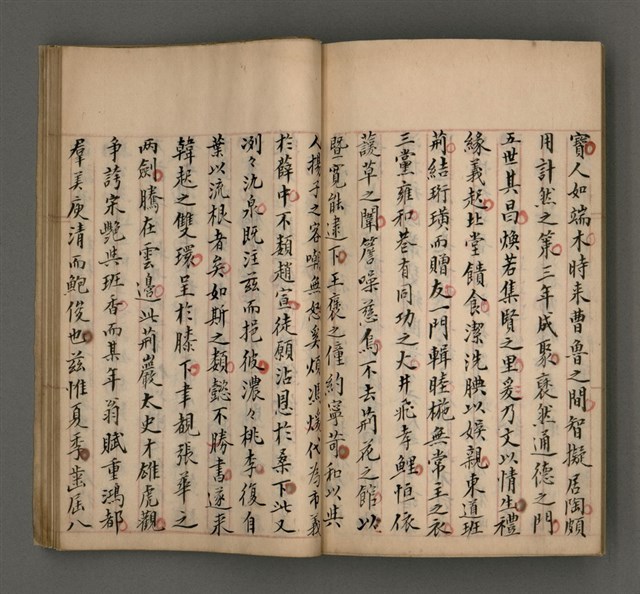 寶人如端木時來曹魯之間智擬居陶頗
用計然之第三年成聚褒然通德之門
五世其昌煥若集賢之里爰乃文以情生禮
緣義起北堂饋食潔洗腆以娛親東道班
荊結珩璜而贈友一門輯睦椸無常主之衣
三黨雍和巷有同功之火井飛孝鯉恒依
諼草之闈簷噪慈烏不去荊花之館以
暨寬能逮下王褒之僮約寧苛和以與
人揚子之客嘲無恕奚煩馮煖代為市義
於薛中不類趙宣徒願沾恩於桑下此又
冽々氿泉既注茲而挹彼濃々桃李復自
葉以流根者矣如斯之懿不勝書遂來
韓起之雙環呈於膝下聿覩張華之
兩劍騰在雲邊此荊巖太史才雄虎觀
爭誇宋艷與班香而某年翁賦重鴻都
羣美庾清而鮑俊也茲惟夏季歯屆八